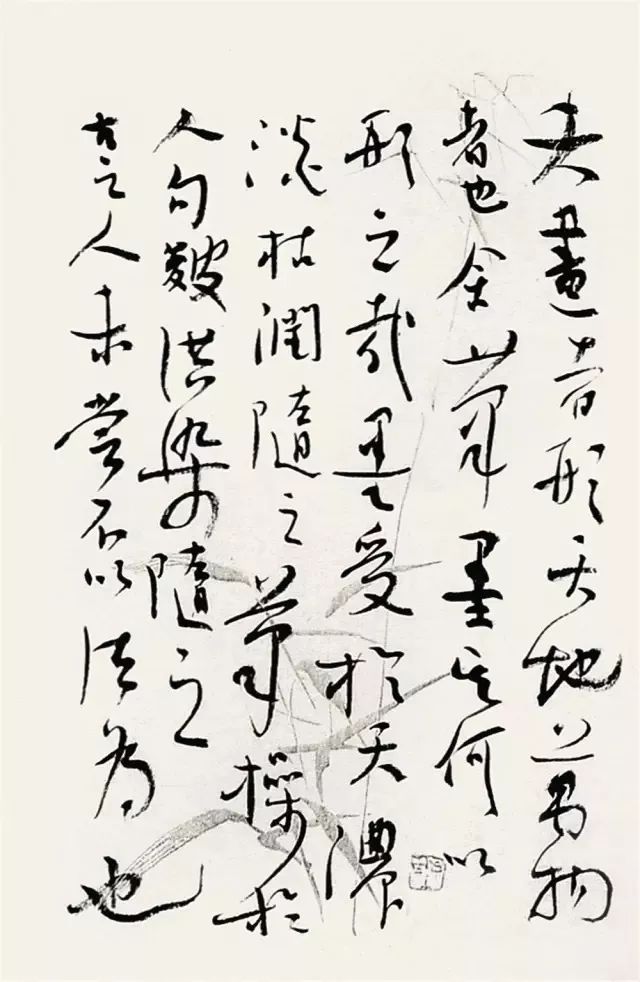 夫畫者形天地萬物
者也舍筆墨其何以
形之哉墨受於天濃
淡枯潤隨之筆操於
人句皴洪染隨之
古之人未嘗不以法為也